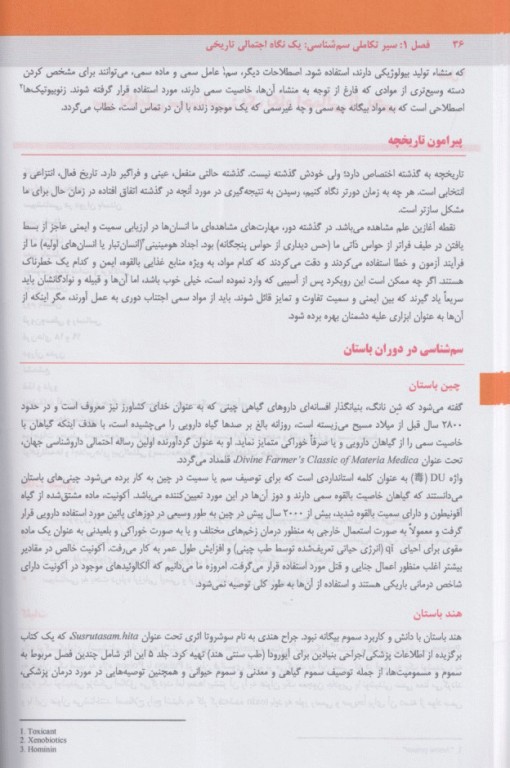 ۳۶ فصل ۱: سیر تکاملی سم‌شناسی: یک نگاه اجتمالی تاریخی
که منشاء تولید بیولوژیکی دارند، استفاده شود. اصطلاحات دیگر، سم۱ عامل سمی و ماده سمی، می‌توانند برای مشخص کردن
دسته وسیع‌تری از موادی که فارغ از توجه به منشأ آن‌ها، خاصیت سمی دارند، مورد استفاده قرار گرفته شوند. زنوبیوتیک‌ها۲
اصطلاحی است که به مواد بیگانه چه سمی و چه غیرسمی که یک موجود زنده با آن در تماس است، خطاب می‌گردد.
پیرامون تاریخچه
تاریخچه به گذشته اختصاص دارد؛ ولی خودش گذشته نیست. گذشته حالتی منفعل، عینی و فراگیر دارد. تاریخ فعال، انتزاعی و
انتخابی است. هر چه به زمان دورتر نگاه کنیم، رسیدن به نتیجه‌گیری در مورد آنچه در گذشته اتفاق افتاده در زمان حال برای ما
مشکل سازتر است.
نقطه آغازین علم مشاهده می‌باشد. در گذشته دور، مهارت‌های مشاهده‌ای ما انسان‌ها در ارزیابی سمیت و ایمنی عاجز از بسط
یافتن در طیف فراتر از حواس ذاتی ما (حس دیداری از حواس پنجگانه) بود. اجداد هومینینی۳ (انسان‌تبار یا انسان‌های اولیه) ما از
فرآیند آزمون و خطا استفاده می‌کردند و دقت می‌کردند که کدام مواد، به ویژه منابع غذایی بالقوه، ایمن و کدام یک خطرناک
هستند. اگر چه ممکن است این رویکرد پس از آسیبی که وارد نموده است، خیلی خوب باشد، اما آن‌ها و قبیله و نوادگانشان باید
سریعاً یاد گیرند که بین ایمنی و سمیت تفاوت و تمایز قائل شوند. باید از مواد سمی اجتناب دوری به عمل آورند، مگر اینکه از
آن‌ها به عنوان ابزاری علیه دشمنان بهره برده شود.
سم‌شناسی در دوران باستان
چین باستان
گفته می‌شود که شِن نانگ، بنیانگذار افسانه‌ای داروهای گیاهی چینی که به عنوان خدای کشاورز نیز معروف است و در حدود
۲۸۰۰ سال قبل از میلاد مسیح می‌زیسته است، روزانه بالغ بر صدها گیاه دارویی را می‌چشیده است، با هدف اینکه گیاهان با
خاصیت سمی را از گیاهان دارویی و یا صرفاً خوراکی متمایز نماید. او به عنوان گردآورنده اولین رساله اجتمالی داروشناسی جهان،
تحت عنوان Divine Farmer's Classic of Materia Medica، قلمداد می‌گردد.
واژه DU (毒) به عنوان کلمه استانداردی است که برای توصیف سم یا سمیت در چین به کار برده می‌شود. چینی‌های باستان
می‌دانستند که گیاهان خاصیت بالقوه سمی دارند و دوز آن‌ها در این مورد تعیین‌کننده می‌باشد. آکونیت، ماده مشتق‌شده از گیاه
آقونیطون و دارای سمیت بالقوه شدید، بیش از ۲۰۰۰ سال پیش در چین به طور وسیعی در دوزهای پائین مورد استفاده دارویی قرار
گرفت و معمولاً به صورت استعمال خارجی به منظور درمان زخم‌های مختلف و یا به صورت خوراکی و بلعیدنی به عنوان یک ماده
مقوی برای احیای qi (انرژی حیاتی تعریف‌شده توسط طب چینی) و افزایش طول عمر به کار می‌رفت. آکونیت خالص در مقادیر
بیشتر اغلب منظور اعمال جنایی و قتل مورد استفاده قرار می‌گرفت. امروزه ما می‌دانیم که آلکالوئیدهای موجود در آکونیت دارای
شاخص درمانی باریکی هستند و استفاده از آن‌ها به طور کلی توصیه نمی‌شود.
هند باستان
هند باستان با دانش و کاربرد سموم بیگانه نبود. جراح هندی به نام سوشروتا اثری تحت عنوان Susrutasam.hita که یک کتاب
برگزیده از اطلاعات پزشکی/جراحی بنیادین برای آیورودا (طب سنتی هند) تهیه کرد. جلد ۵ این اثر شامل چندین فصل مربوط به
سموم و مسمومیت‌ها، از جمله توصیف سموم گیاهی و معدنی و سموم حیوانی و همچنین توصیه‌هایی در مورد درمان پزشکی،
1. Toxicant
2. Xenobiotics
3. Hominin